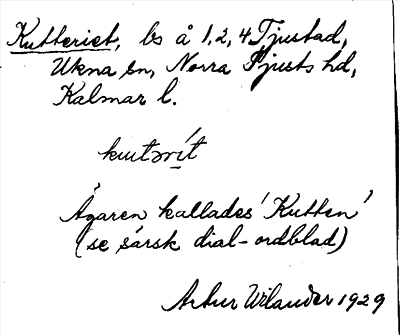 Kutteriet, ls å 1, 2, 4 Tjustad,
Ukna sn, Norra Tjusts hd,
Kalmar l.
kutərít
Ägaren kallades 'Kutten'
(se särsk dial-ordblad)
Artur Wilander 1929